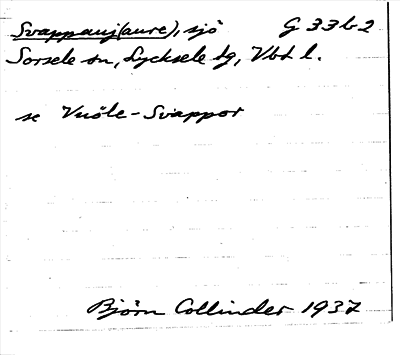 Svappauj(aure), sjö G 33 b 2
Sorsele sn, Lycksele lg, Vbt l.
se Vuöle-Svappor
Björn Collinder 1937